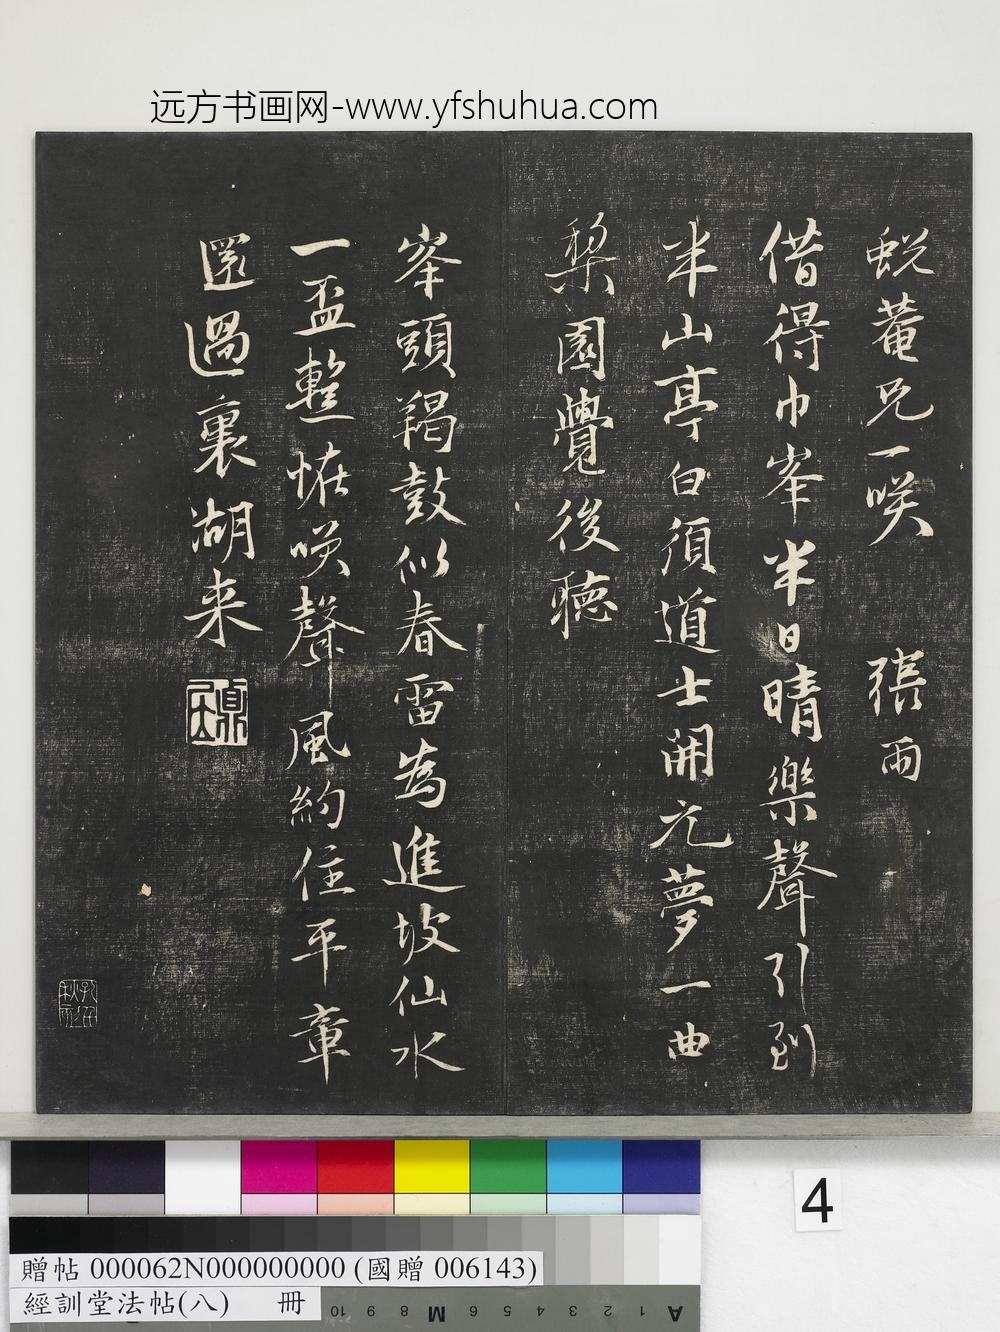 远方书画网-www.yfshuhua.com
蜕菴兄一咲 張雨
借得巾峯半日晴樂聲引到
半山亭白須道士開元夢一曲
梨園覺後聴
峯頭羯鼓似春雷為進坡仙水
一盃整恠咲聲風約住平章
還過裏湖来
4
贈帖 000062N000000000 (國贈 006143)
經訓堂法帖(八) 冊
10 9 8 M 6 5 4 3 2 1 A